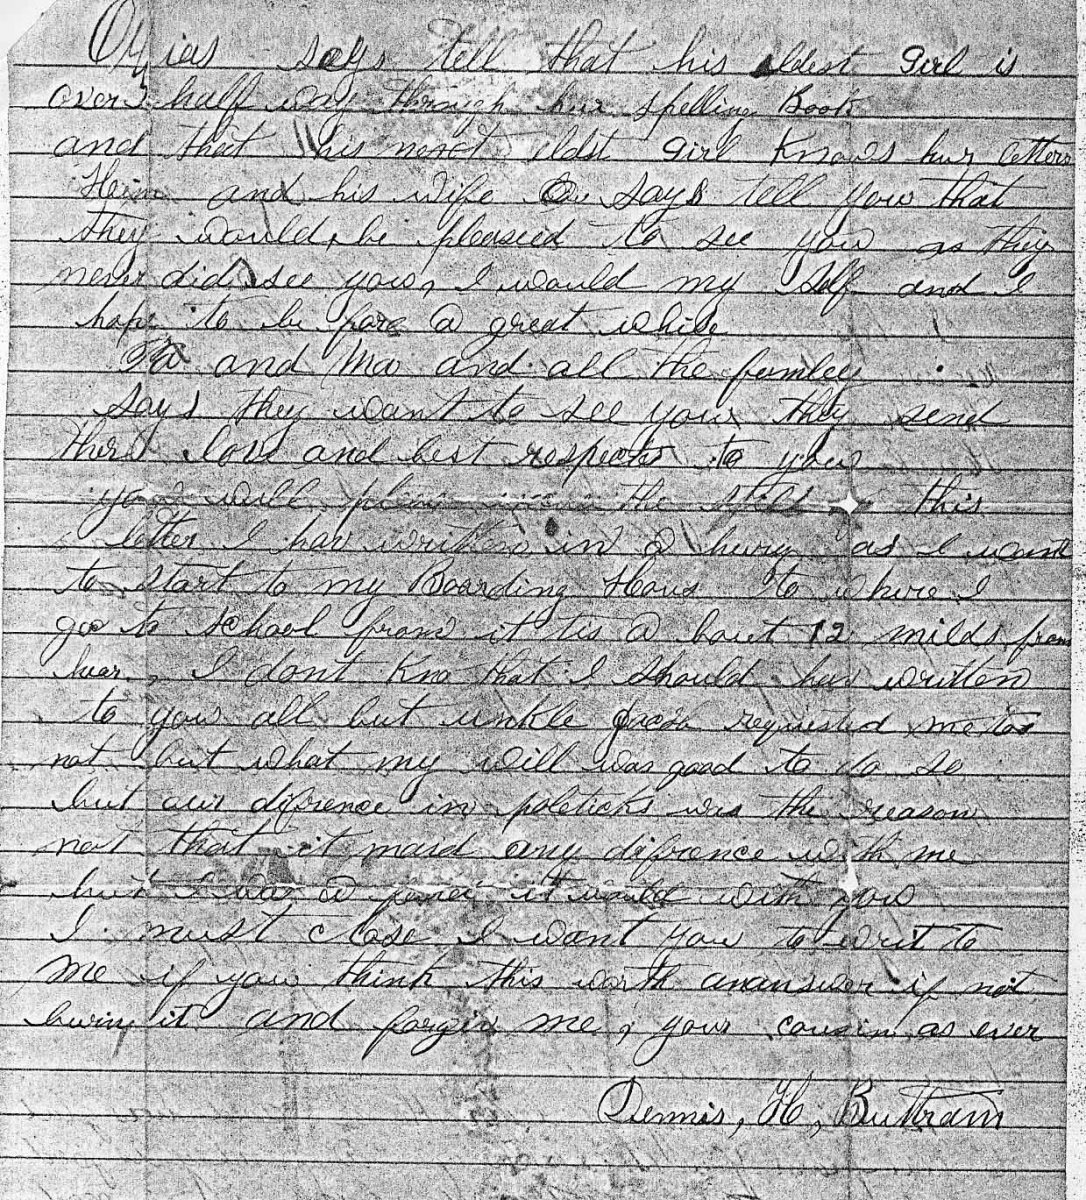 says tell that his oldest girl is
over half way through hur spelling Book
and that his next oldst girl knows hur letters
Heim and his wife says tell you that
they would be pleased to see you as they
never did see you, I would my self and I
hope to be fore a great while
Pa and Ma and all the famley
Says they want to see you they send
there love and best respects to you
you will pleas the this
letter I hav written in a hurry as I want
to start to my Boarding Hous to where I
go to school from it tis a bout 12 milds from
hear, I dont kno that I should hav written
to you all but unkle Jacob requested me to
not but what my will was good to do so
but our difrence in politicks was the reason
not that it maid any difrence with me
but I was a it would with you
I must close I want you to writ to
me if you think this worth ananswer if not
burn it and forgiv me, your cousin as ever
Dennis, H, Buttram